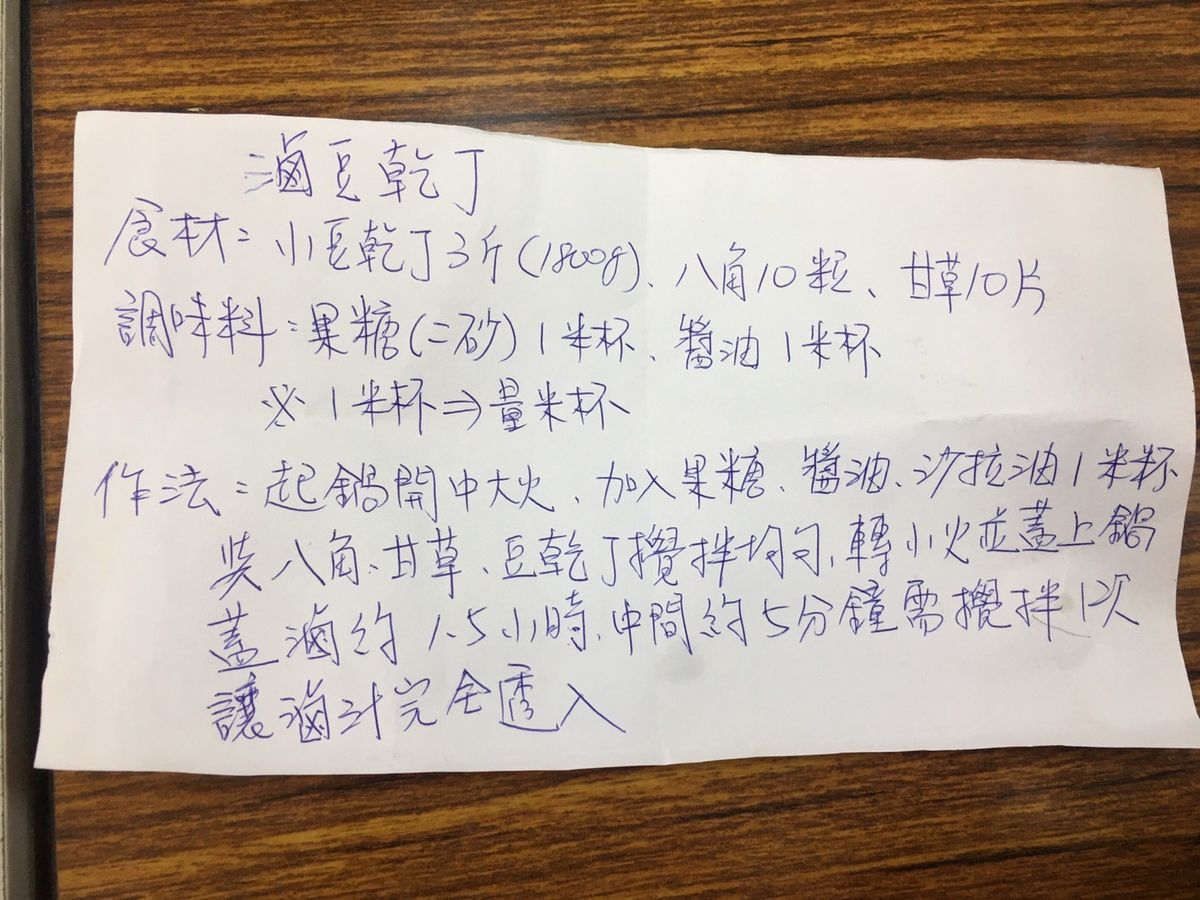 滷豆乾丁
食材：小豆乾丁3斤(1800g)、八角10粒、甘草10片
調味料：果糖(二砂)1米杯、醬油1米杯
※1米杯⇒量米杯
作法：起鍋開中大火、加入果糖、醬油、沙拉油1米杯
八角、甘草、豆乾丁攪拌均勻,轉小火並蓋上鍋
蓋滷約1.5小時,中間約5分鐘需攪拌1次
讓滷汁完全透入